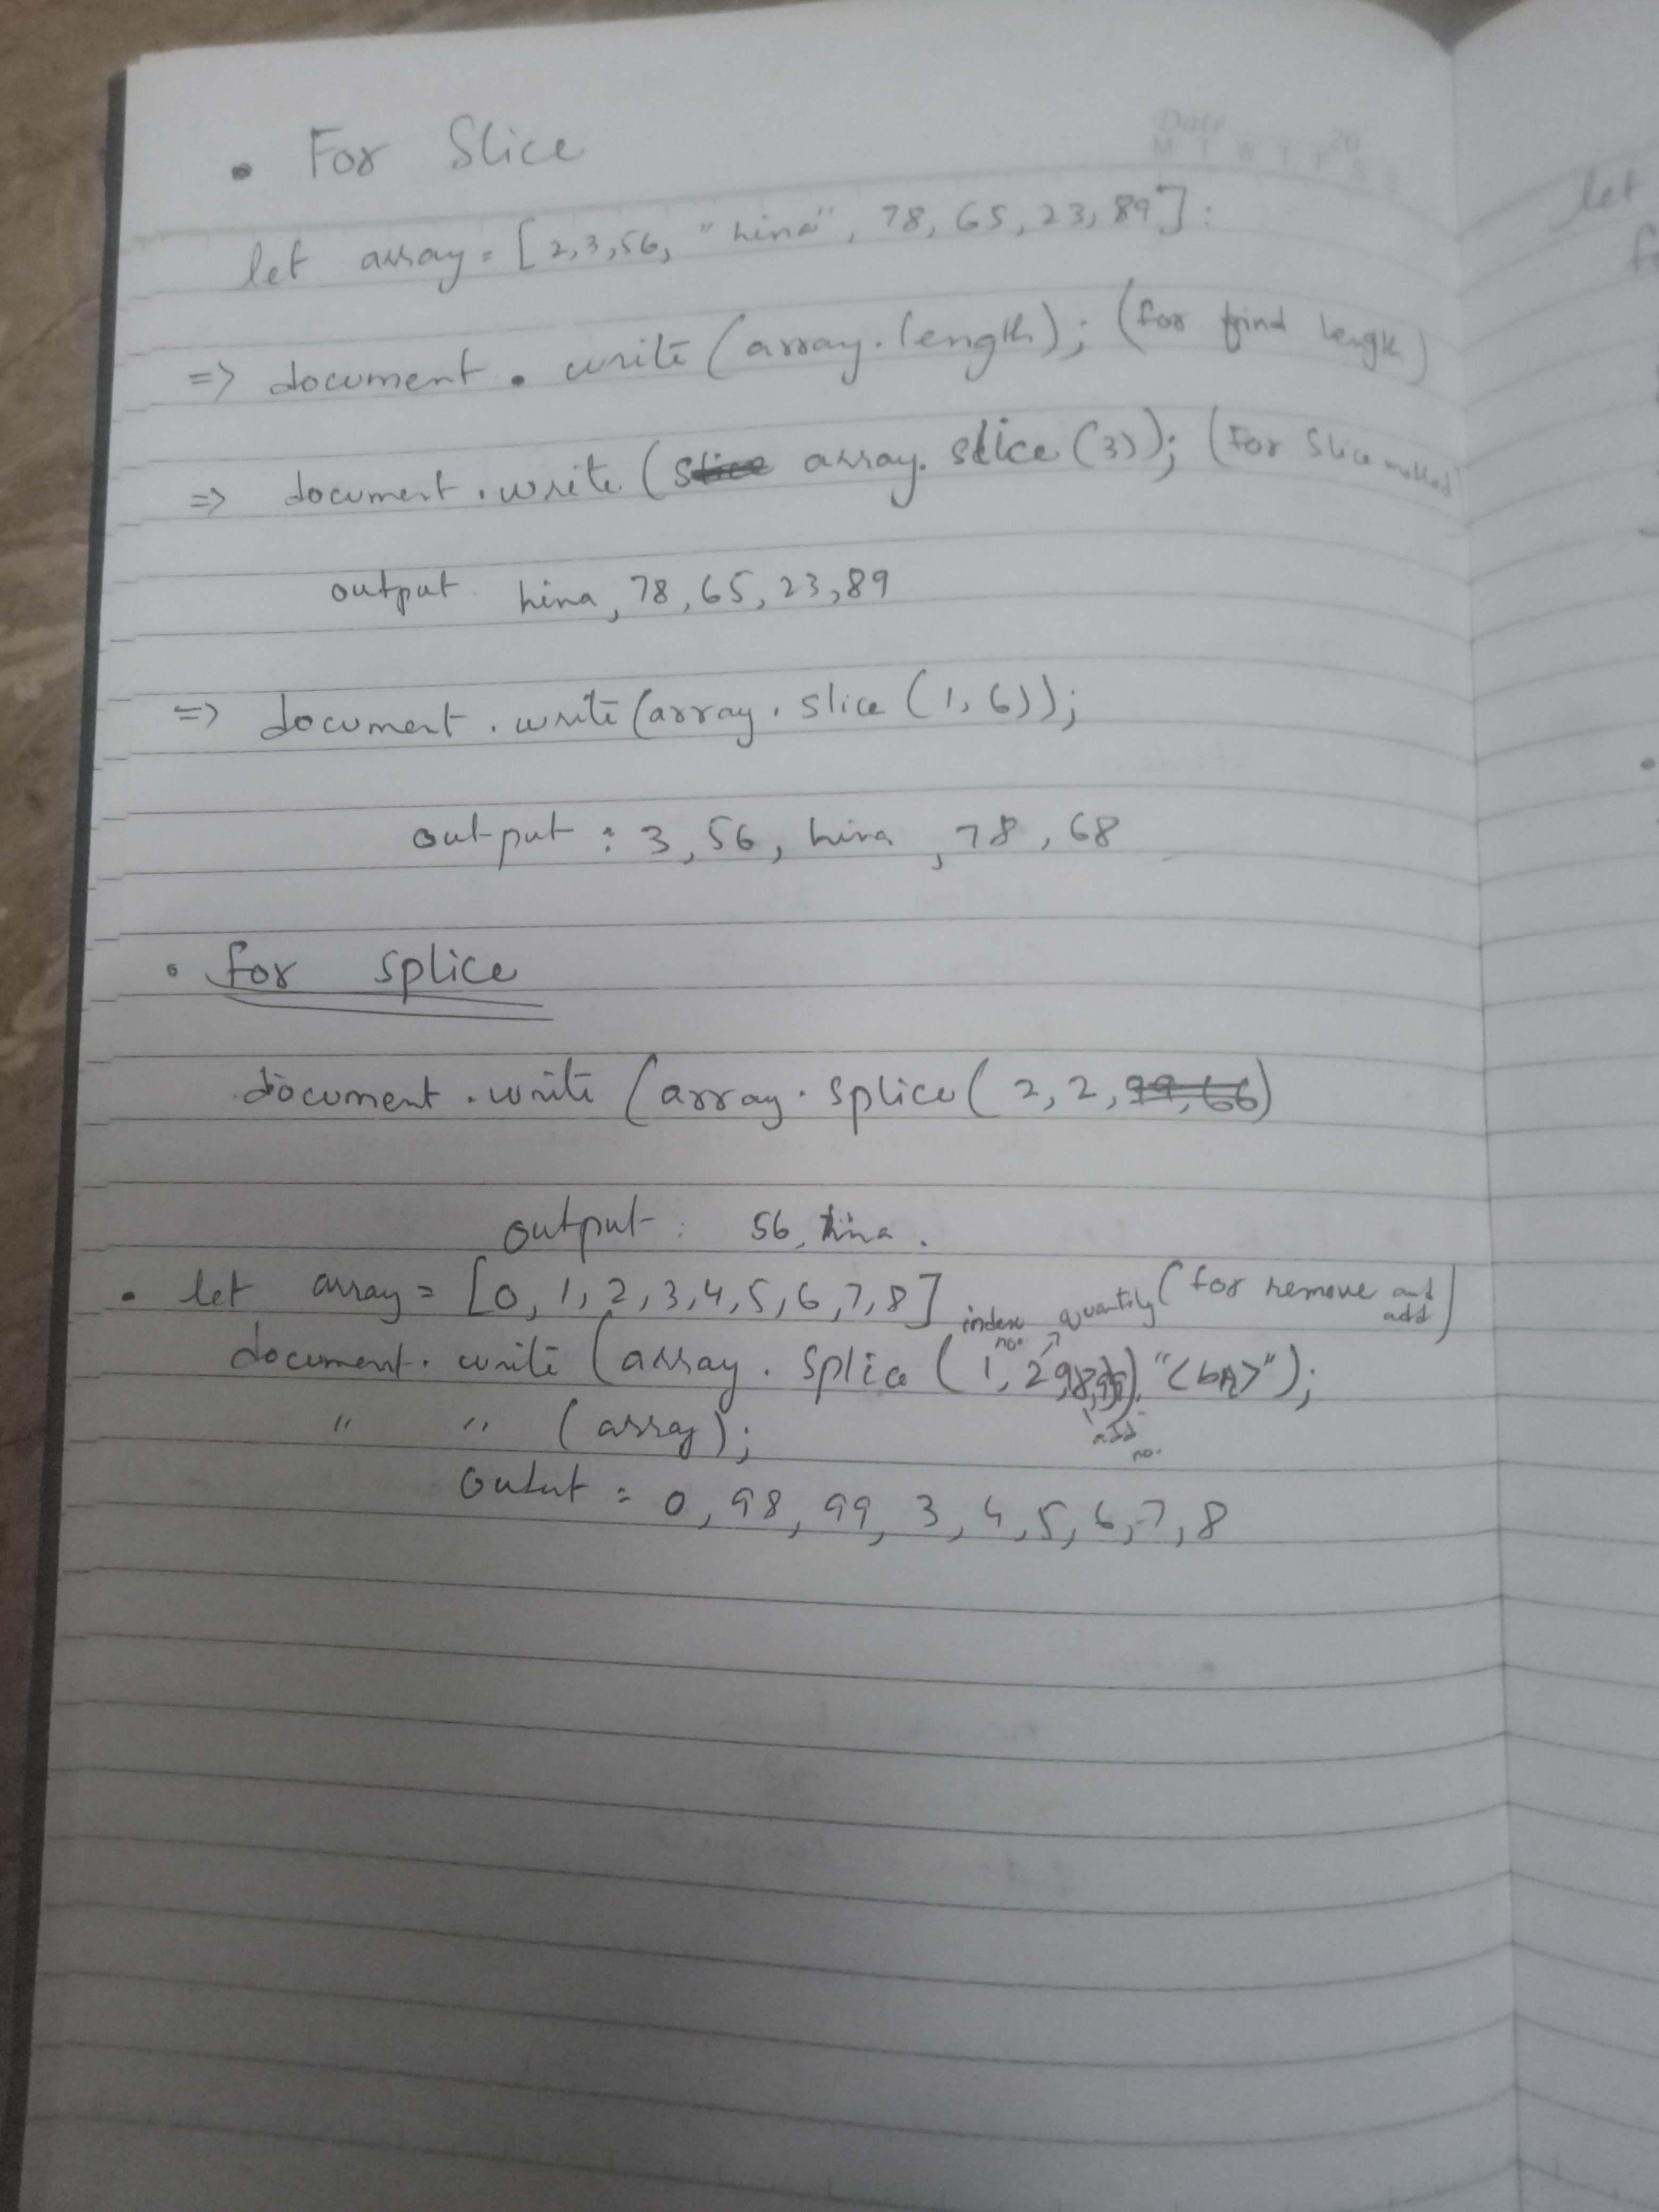 Date 20
M T W T F S S
• For Slice
let array = [2,3,56, "hina", 78, 65, 23, 89]:
=> document . write (array.length); (for find length)
=> document .write (slice array. slice (3)); (For Slice method)
output hina, 78, 65, 23, 89
=> document . write (array . slice (1, 6));
output : 3, 56, hina, 78, 68
• for splice
document . write (array . splice ( 2, 2, 99, 66)
output : 56, hina .
• let array = [0, 1, 2, 3, 4, 5, 6, 7, 8] (for remove and add)
index no. quantity
document . write (array . Splice (1, 2, 98, 99) "<br>");
add no.
" " (array);
Outut = 0, 98, 99, 3, 4, 5, 6, 7, 8
let